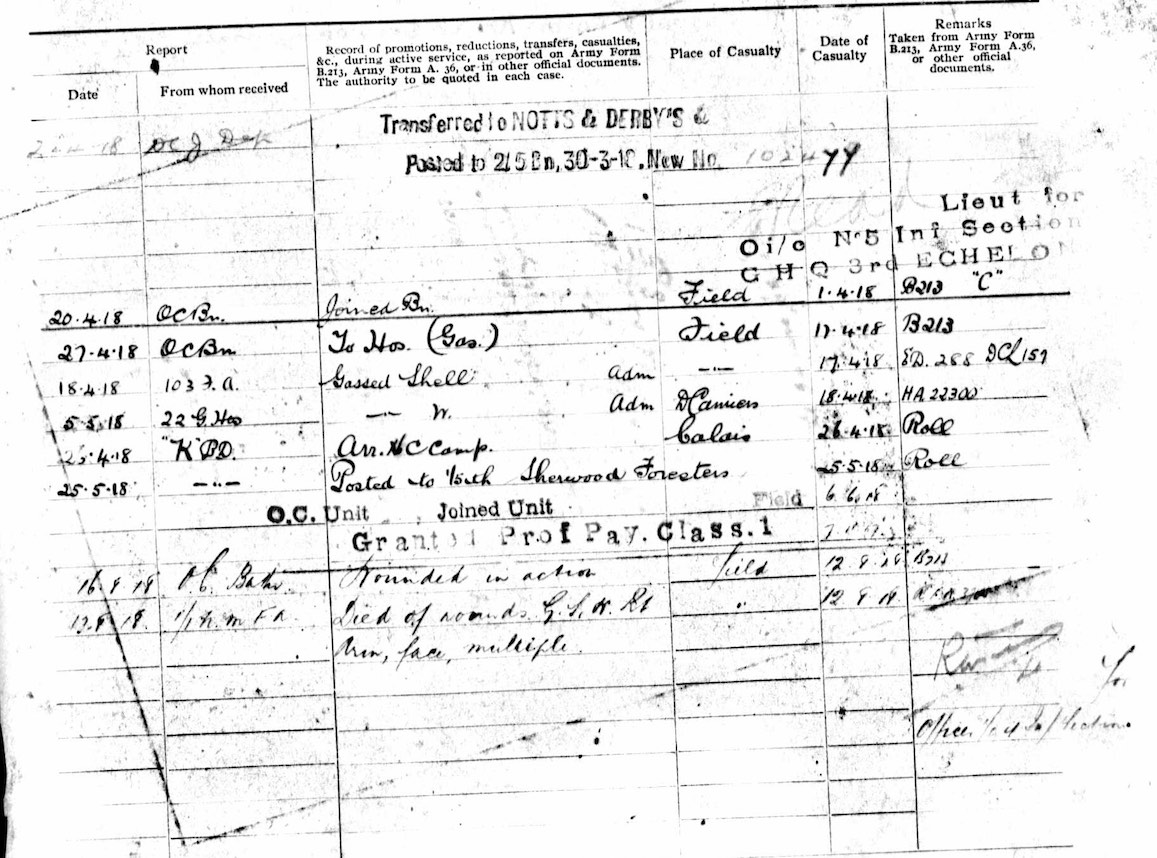 Report
Date
From whom received
Record of promotions, reductions, transfers, casualties,
&c., during active service, as reported on Army Form
B.213, Army Form A. 36, or in other official documents.
The authority to be quoted in each case.
Place of Casualty
Date of
Casualty
Remarks
Taken from Army Form
B.213, Army Form A.36,
or other official
documents.
18 OC J Dep
Transferred to NOTTS & DERBY'S &
Posted to 2/5 Bn, 30-3-18. New No. 102477
Lieut for
Oi/c No5 Inf Section
G H Q 3rd ECHELON
20.4.18 OC Bn. Joined Bn. Field 1.4.18 B213 "C"
27.4.18 OC Bn To Hos. (Gas.) Field 17.4.18 B213
18.4.18 103 F.A. Gassed Shell Adm —"— 17.4.18 288 DCL 159
5.5.18 22 G. Hos —"— W. Adm D Camiers 18.4.18 HA 22300
25.4.18 "K" BD. Arr. H C Camp. Calais 26.4.18 Roll
25.5.18 —"— Posted to 15th Sherwood Foresters 25.5.18 Roll
O.C. Unit Joined Unit Field 6.6.18
Granted Prof Pay. Class. 1
16.8.18 O.C. Wounded in action field 12.8.18 B213
F A Died of wounds G.S.W. Rt " 12.8.18
Arm, face, multiple.
for
Officer i/c Section.